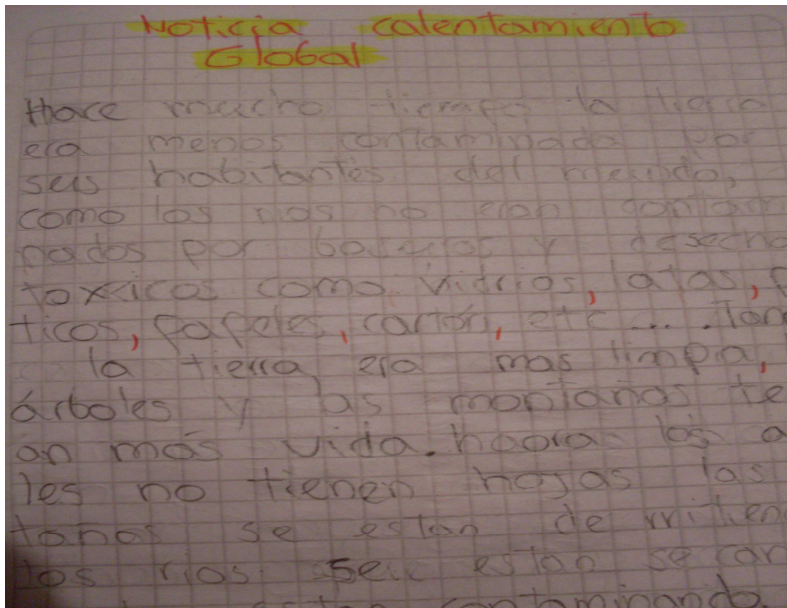 Noticia calentamiento
Global
Hace mucho tiempo la tierra
era menos contaminada por
seis habitantes del mundo,
como los rios no eran contam
nados por basuras y desecho
toxicos como vidrios, latas, p
ticos, papeles, cartón, etc.... Tam
la tierra era mas limpia,
árboles y las montañas te
an más vida. haora los a
les no tienen hojas las
tañas se estan de rritien
los rios se estan secan
contaminando